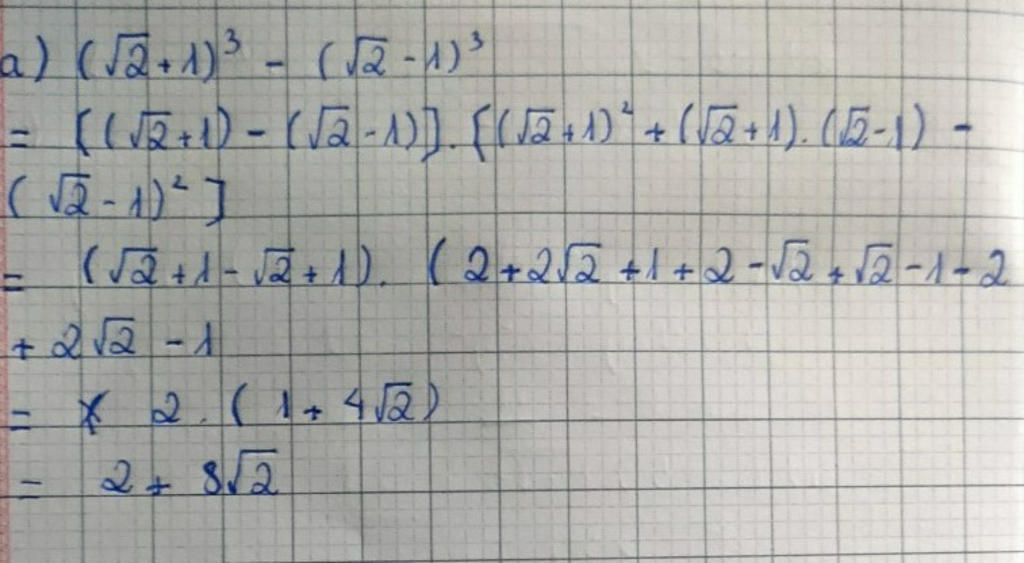 a) (√2+1)³ - (√2-1)³
= [(√2+1)-(√2-1)].[(√2+1)²+(√2+1).(√2-1) -
(√2-1)²]
= (√2+1-√2+1). (2+2√2+1+2-√2+√2-1-2
+2√2-1
= 2.(1+4√2)
= 2+8√2